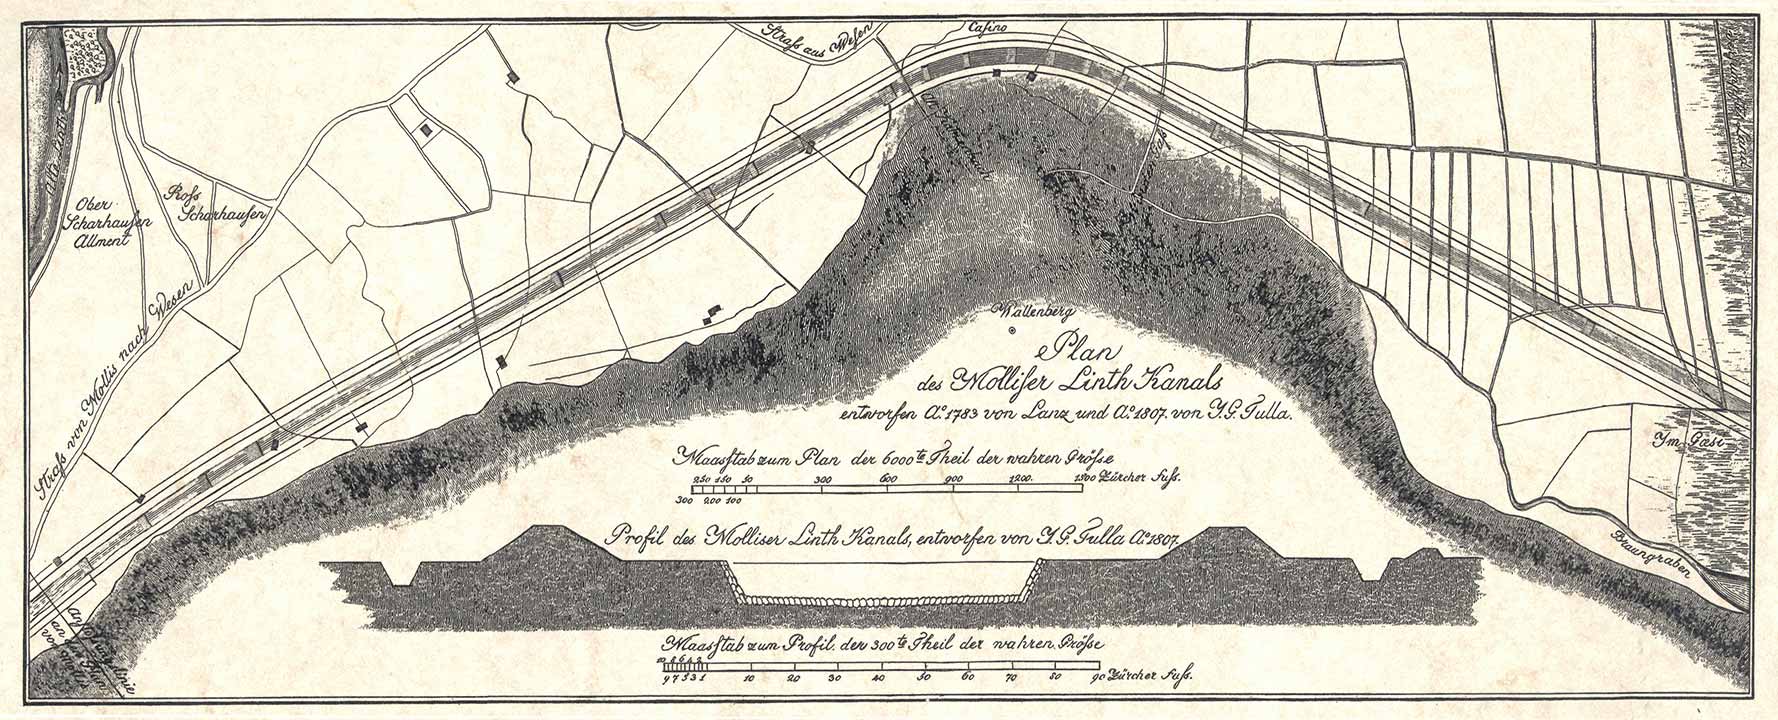 Casino
Straſs aus Wesen
Alte Linth
Ober
Scharhausen
Allment
Roſs
Scharhausen
Straſs von Mollis nach Wesen
Wallenberg
Plan
des Molliser Linth Kanals
entworfen Aº 1783 von Lanz und Aº 1807 von J. G. Tulla.
Maasstab zum Plan der 6000te Theil der wahren Gröſse
250 150 50 300 600 900 1200. 1500 Zürcher Fuſs.
300 200 100
Profil des Molliser Linth Kanals, entworfen von J. G. Tulla Aº 1807.
Maasstab zum Profil. der 300te Theil der wahren Gröſse
10 8 6 4 2
9 7 5 3 1 10 20 30 40 50 60 70 80 90 Zürcher Fuſs.
Im Gäsi
Braungraben